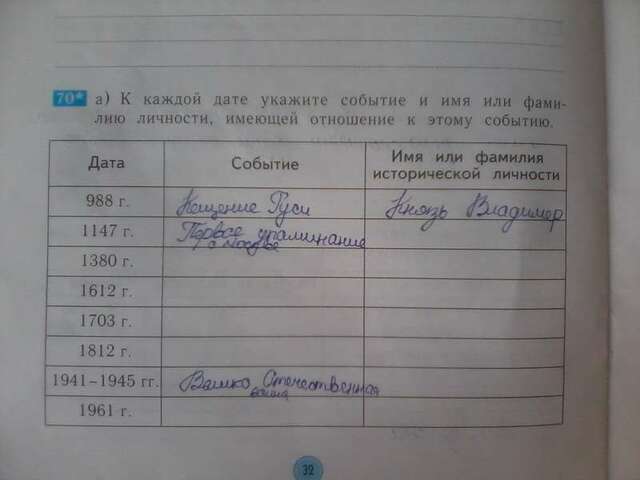 70* а) К каждой дате укажите событие и имя или фами-
лию личности, имеющей отношение к этому событию.
Дата Событие Имя или фамилия
исторической личности
988 г. Кещение Руси Князь Владимер
1147 г. Первое упаминание
о москве
1380 г.
1612 г.
1703 г.
1812 г.
1941–1945 гг. Велико Отечественная
война
1961 г.
32